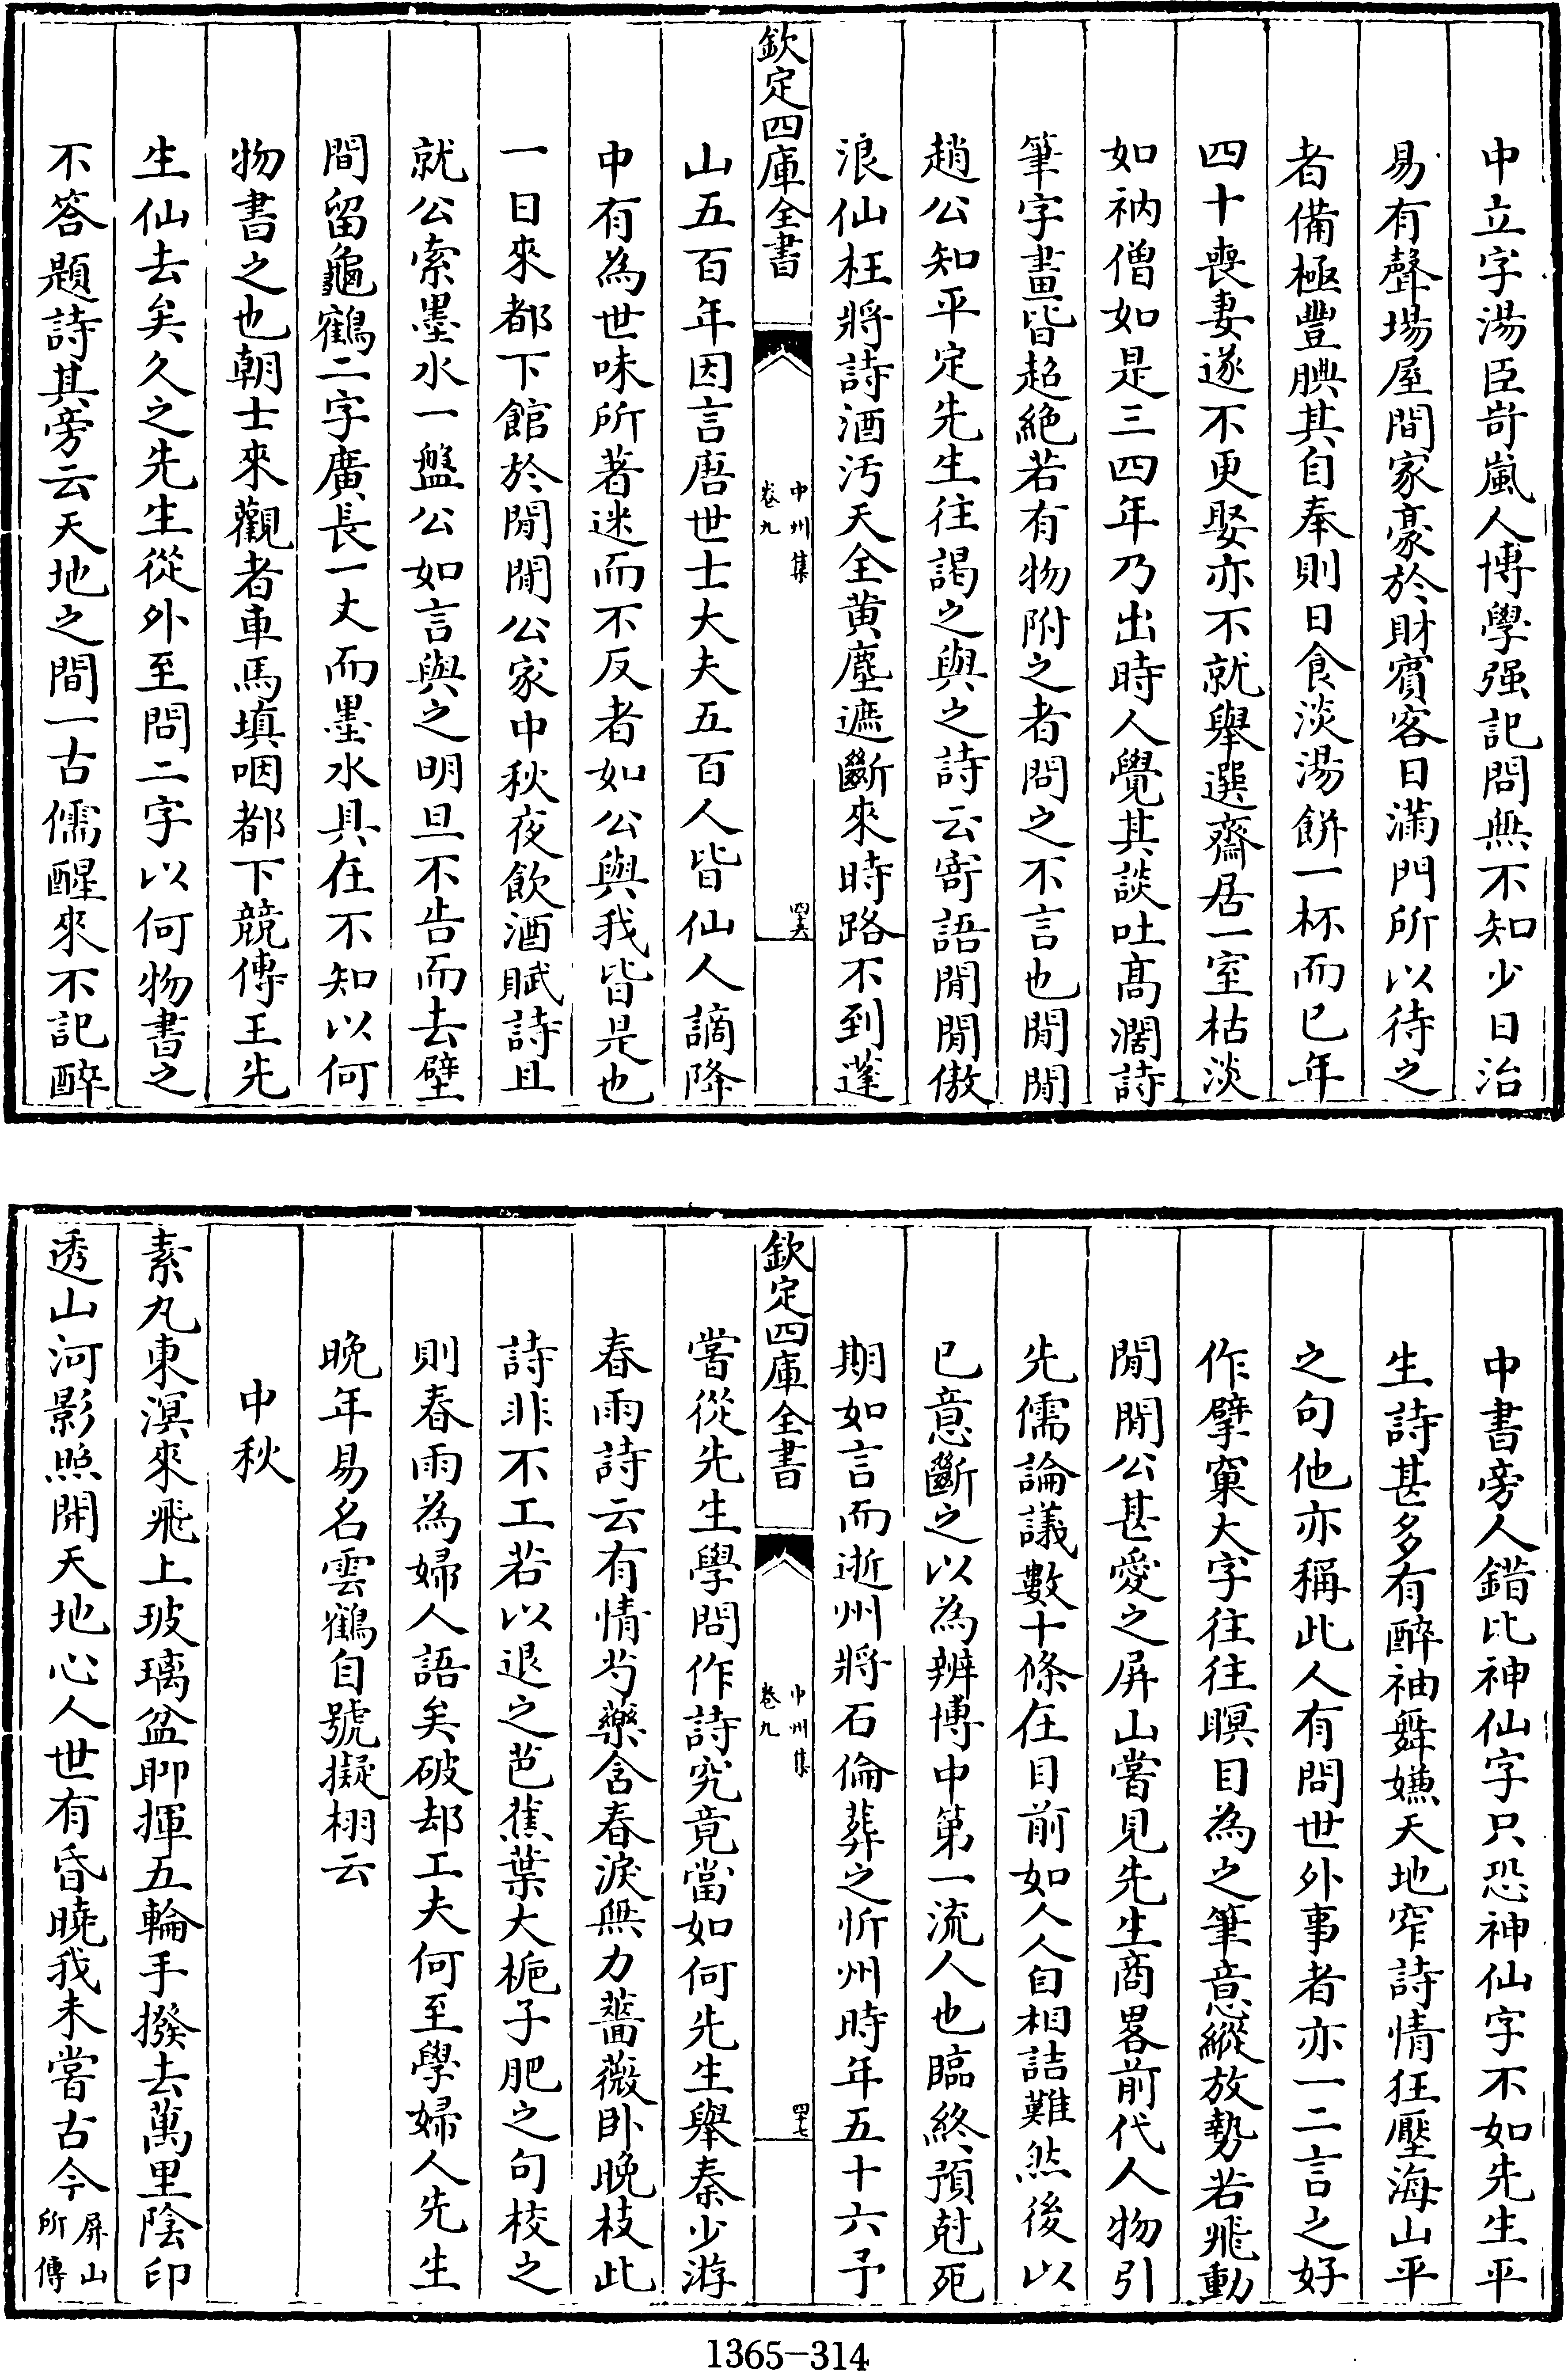 中立字湯臣岢嵐人博學强記問無不知少日治
易有聲場屋間家豪於財賓客日滿門所以待之
者備極豐腆其自奉則日食淡湯餅一杯而已年
四十喪妻遂不更娶亦不就舉選齋居一室枯淡
如衲僧如是三四年乃出時人覺其談吐髙濶詩
筆字畫皆超絶若有物附之者問之不言也閒閒
趙公知平定先生往謁之與之詩云寄語閒閒傲
浪仙枉將詩酒汚天全黄塵遮斷來時路不到蓬
欽定四庫全書
中州集
卷九
四十六
山五百年因言唐世士大夫五百人皆仙人謫降
中有為世味所著迷而不反者如公與我皆是也
一日來都下館於閒閒公家中秋夜飲酒賦詩且
就公索墨水一盤公如言與之明旦不告而去壁
間留龜鶴二字廣長一丈而墨水具在不知以何
物書之也朝士來觀者車馬填咽都下競傳王先
生仙去矣久之先生從外至問二字以何物書之
不答題詩其旁云天地之間一古儒醒來不記醉
中書旁人錯比神仙字只恐神仙字不如先生平
生詩甚多有醉袖舞嫌天地窄詩情狂壓海山平
之句他亦稱此人有問世外事者亦一二言之好
作擘窠大字往往瞑目為之筆意縱放勢若飛動
閒閒公甚愛之屏山嘗見先生商畧前代人物引
先儒論議數十條在目前如人人自相詰難然後以
已意斷之以為辨博中第一流人也臨終預尅死
期如言而逝州將石倫葬之忻州時年五十六予
欽定四庫全書
中州集
卷九
四十七
嘗從先生學問作詩究竟當如何先生舉秦少游
春雨詩云有情芍藥含春淚無力薔薇卧晚枝此
詩非不工若以退之芭蕉葉大梔子肥之句校之
則春雨為婦人語矣破却工夫何至學婦人先生
晚年易名雲鶴自號擬栩云
中秋
素丸東溟來飛上玻璃盆聊揮五輪手撥去萬里陰印
透山河影照開天地心人世有昏曉我未嘗古今屏山
所傳
1365-314